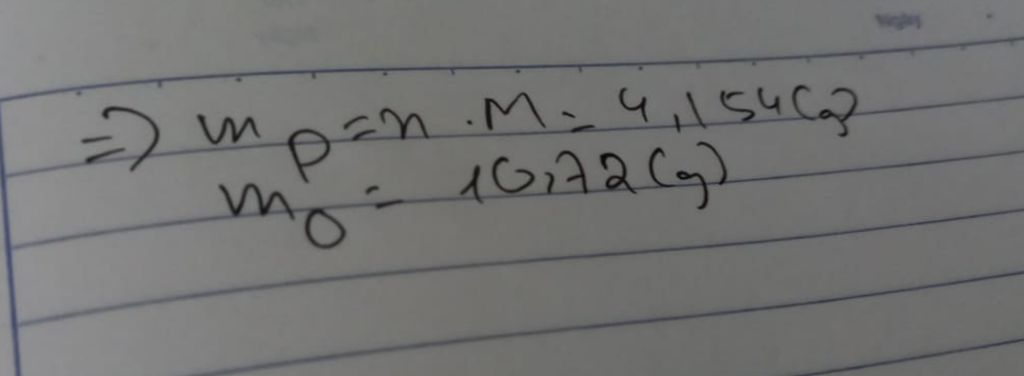 => m P = n . M = 4,154(g)
m O = 10,72 (g)